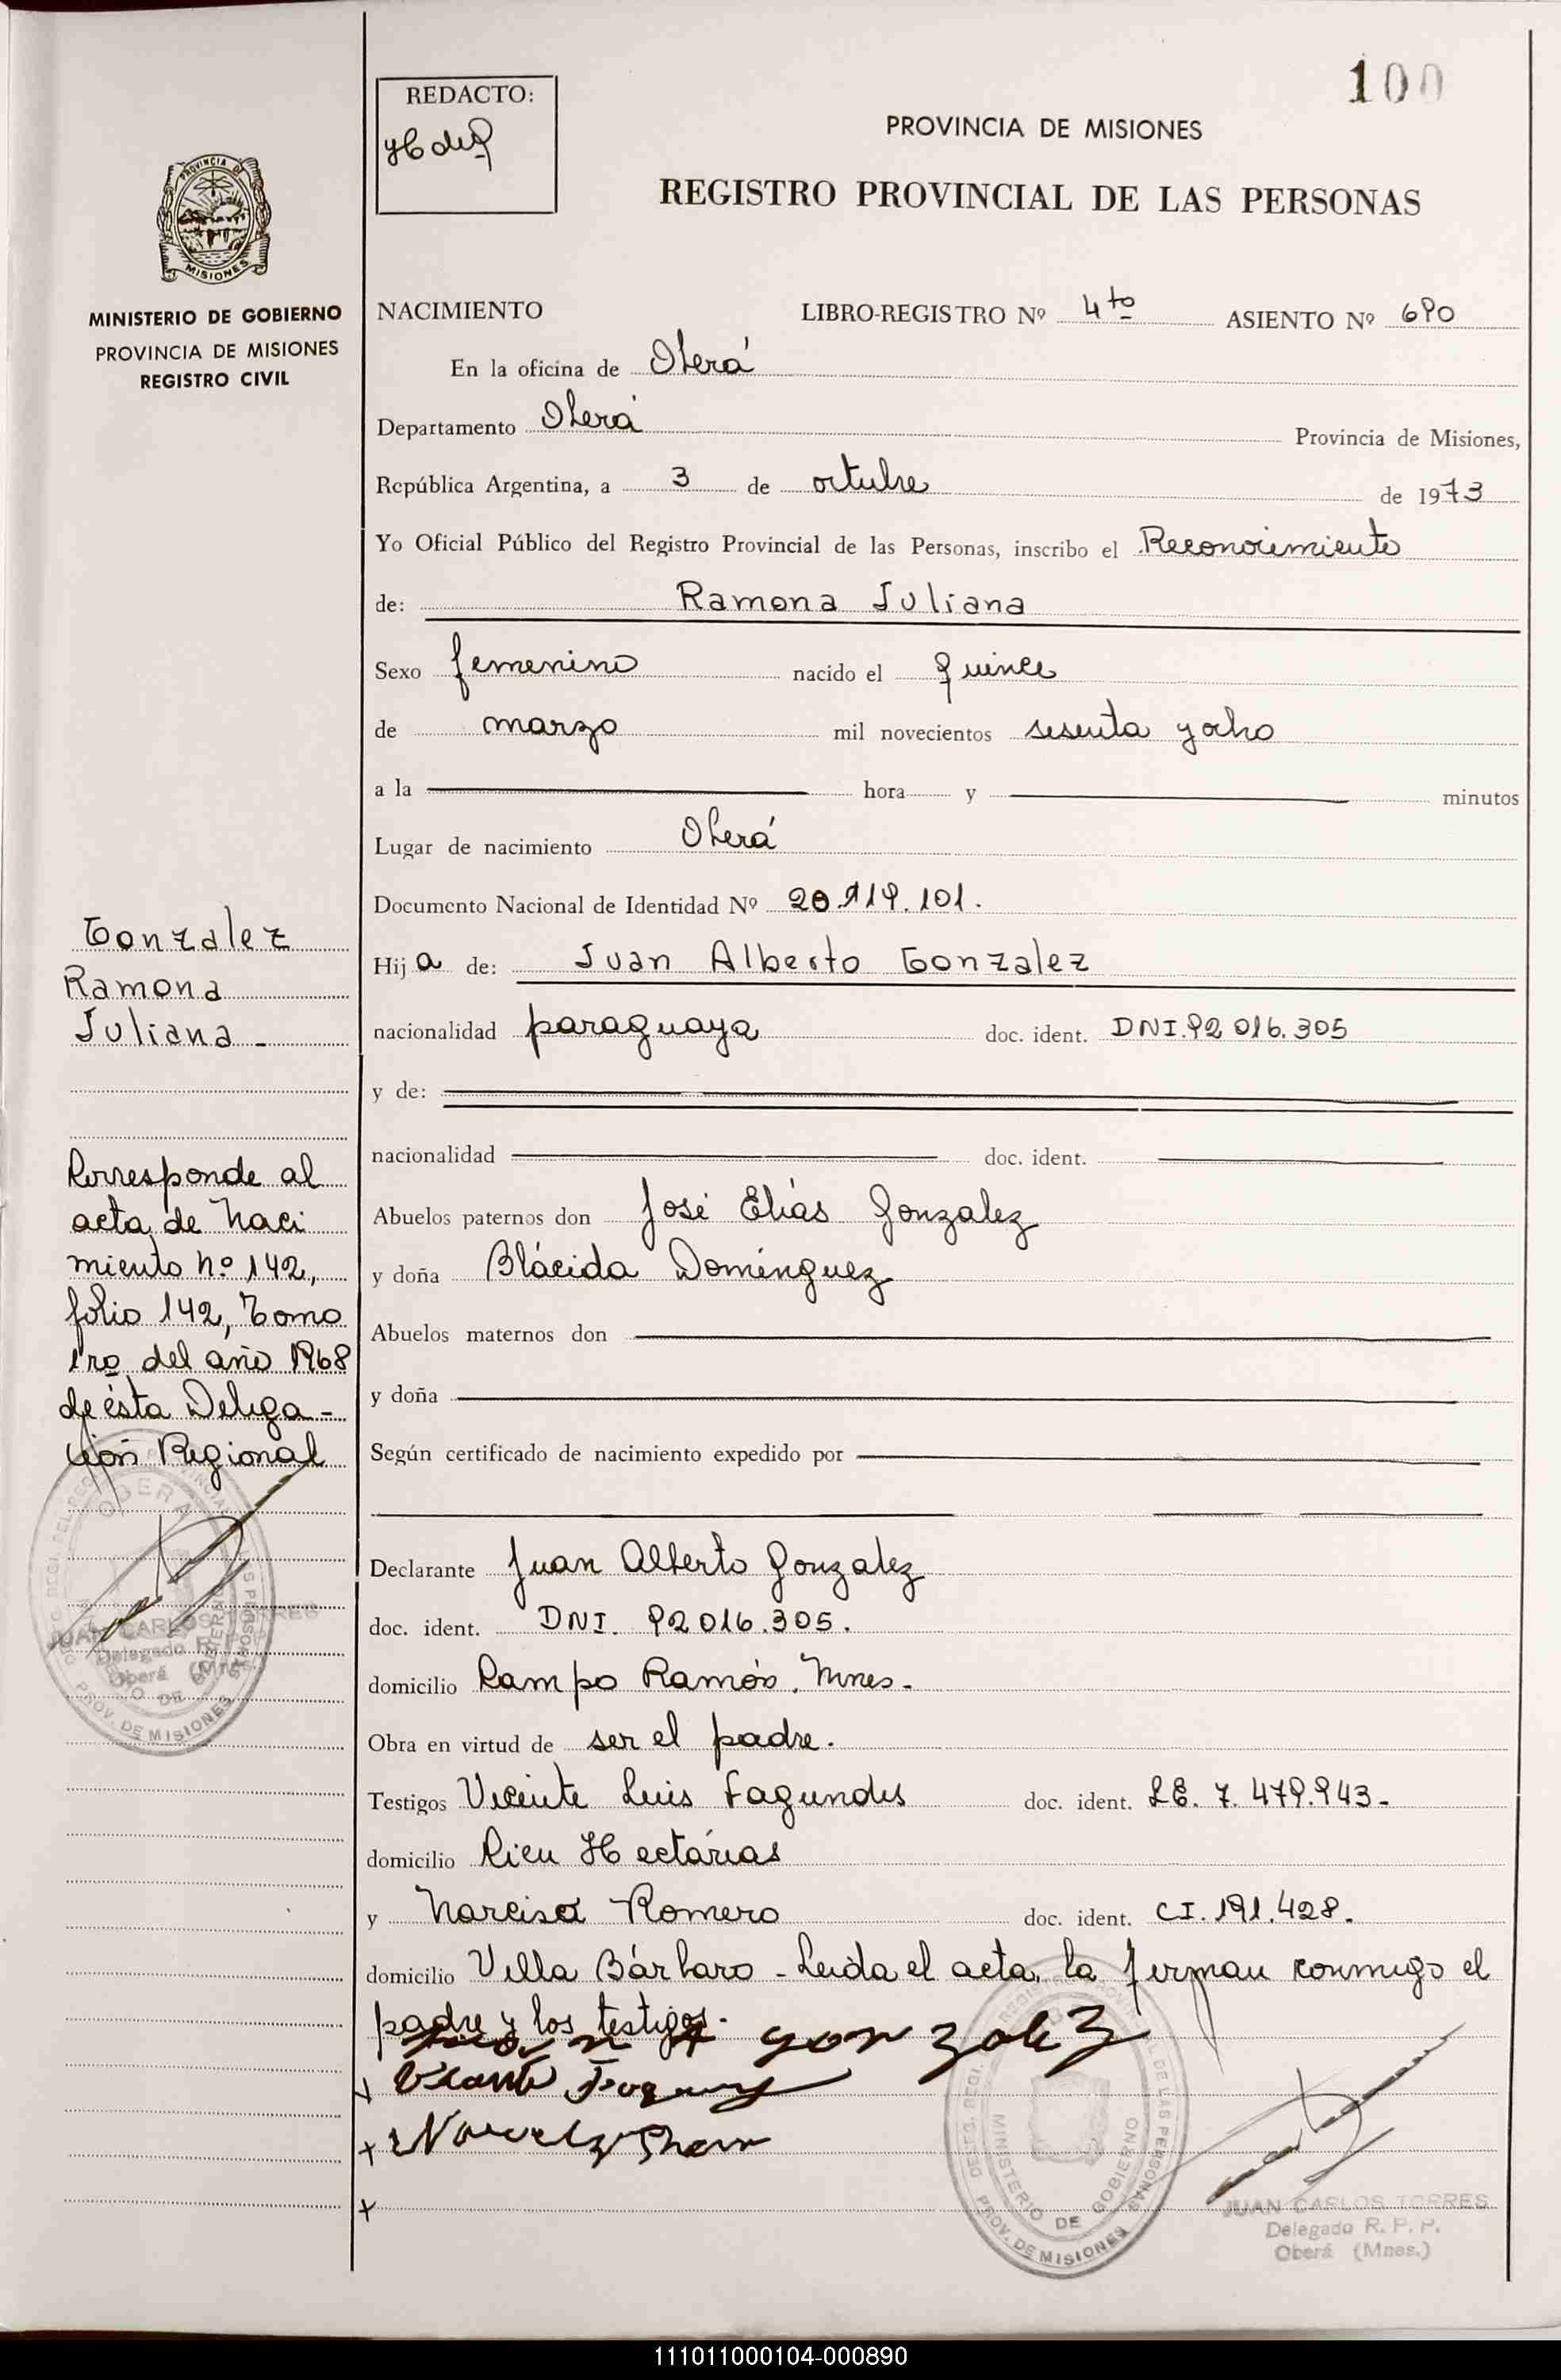 100
REDACTO:
PROVINCIA DE MISIONES
REGISTRO PROVINCIAL DE LAS PERSONAS
PROVINCIA DE
MISIONES
MINISTERIO DE GOBIERNO
PROVINCIA DE MISIONES
REGISTRO CIVIL
NACIMIENTO LIBRO-REGISTRO Nº 4to ASIENTO Nº 690
En la oficina de Oberá
Departamento Oberá Provincia de Misiones,
República Argentina, a 3 de octubre de 1973
Yo Oficial Público del Registro Provincial de las Personas, inscribo el Reconocimiento
de: Ramona Juliana
Sexo femenino nacido el quince
de marzo mil novecientos sesenta y ocho
a la hora y minutos
Lugar de nacimiento Oberá
Documento Nacional de Identidad Nº 20.119.101.
Hija de: Juan Alberto Gonzalez
nacionalidad paraguaya doc. ident. DNI.92 016.305
y de:
nacionalidad doc. ident.
Abuelos paternos don José Elías Gonzalez
y doña Blácida Domínguez
Abuelos maternos don
y doña
Según certificado de nacimiento expedido por
Declarante Juan Alberto Gonzalez
doc. ident. DNI. 92 016.305.
domicilio Campo Ramón, Mnes.
Obra en virtud de ser el padre.
Testigos Vicente Luis Fagundes doc. ident. LE. 7.479.943-
domicilio Cien Hectáreas
y Narcisa Romero doc. ident. CI. 191.428.
domicilio Villa Bárbaro - Leída el acta, la firman conmigo el
padre y los testigos.
Juan A gonzalez
Gonzalez
Ramona
Juliana -
Corresponde al
acta de naci
miento nº 142,
folio 142, Tomo
1ro del año 1968
de ésta Delega-
ción Regional
OBERA
JUAN CARLOS TORRES
Delegado R. P. P.
Oberá (Mnes.)
PROV. DE MISIONES
MINISTERIO DE GOBIERNO
PROV. DE MISIONES
JUAN CARLOS TORRES
Delegado R. P. P.
Oberá (Mnes.)
111011000104-000890